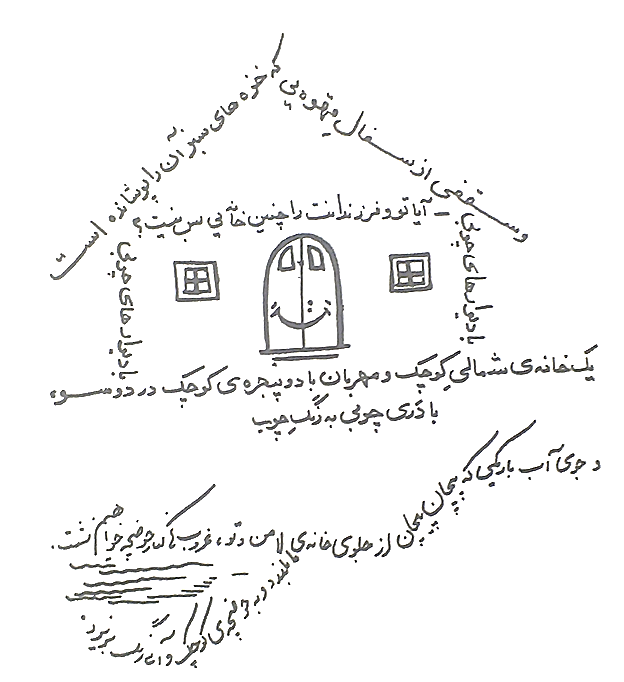 و سقفی از سفال قهوه یی که خزه های سبز آن را پوشانده است
– آیا تو و فرزندانت را چنین خانه یی بس نیست؟
با دیوارهای چوبی
با دیوارهای چوبی
یک خانه‌ی شمالیِ کوچک و مهربان با دو پنجره‌ی کوچک در دو سو،
با دَری چوبی به رنگِ چوب
و جوی آب باریکی که پیچان پیچان از جلوی خانه‌ی
و به حوضچه‌ی کوچک و آبی رنگ بریزد
– من و تو، غروب کنار حوضچه خواهیم نشست.